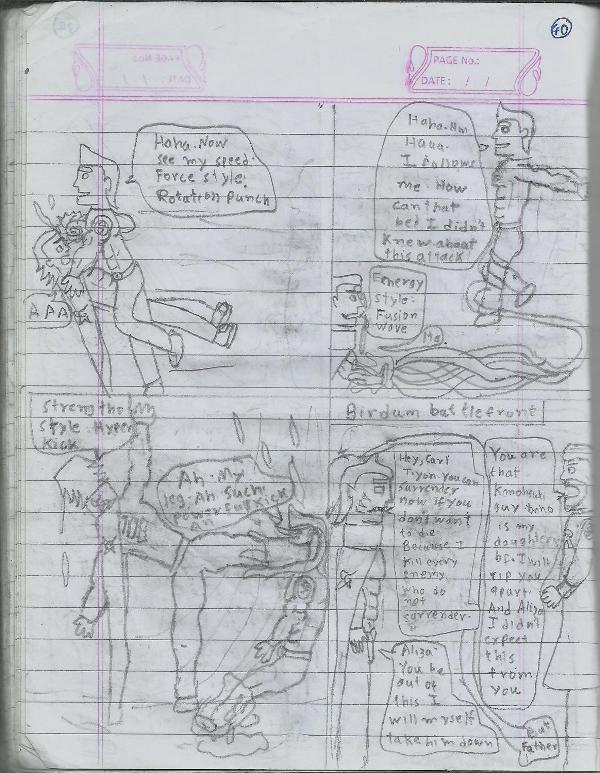 40
PAGE No.:
DATE: / /
Haha. Now
see my speed.
Force style.
Rotation Punch
AAA
Haha. Nm
Haaa.
I follows
me. How
can that
be? I didn't
knew about
this attack
Eenergy
Style.
Fusion
Wave
Ha.
Strength
Style. Hyper
Kick
Ah. My
leg. Ah such
powerful kick
An
Birdum battlefront
Hey, Carl
Tryon. You can
surrender
now if you
don't want
to die
Because I
kill every
enemy
who do
not
surrender.
You are
that
guy who
is my
daughter
bf. I will
rip you
apart.
And Aliza
I didn't
expect
this
from
you
Aliza.
You be
out of
this I
will myself
take him down
But
Father